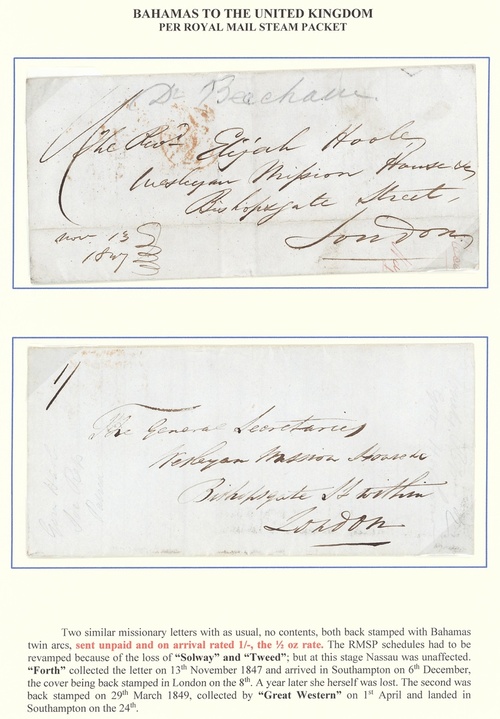 BAHAMAS TO THE UNITED KINGDOM
PER ROYAL MAIL STEAM PACKET
Dr Beecham
The Revd. Elijah Hoole
Wesleyan Mission House
Bishopsgate Street,
London
Nov. 13
1847
1/
The General Secretaries
Wesleyan Mission House
Bishopsgate St within
London
Two similar missionary letters with as usual, no contents, both back stamped with Bahamas
twin arcs, sent unpaid and on arrival rated 1/-, the ½ oz rate. The RMSP schedules had to
be revamped because of the loss of “Solway” and “Tweed”; but at this stage Nassau was unaffected.
“Forth” collected the letter on 13th November 1847 and arrived in Southampton on 6th December,
the cover being back stamped in London on the 8th. A year later she herself was lost. The second was
back stamped on 29th March 1849, collected by “Great Western” on 1st April and landed in
Southampton on the 24th.